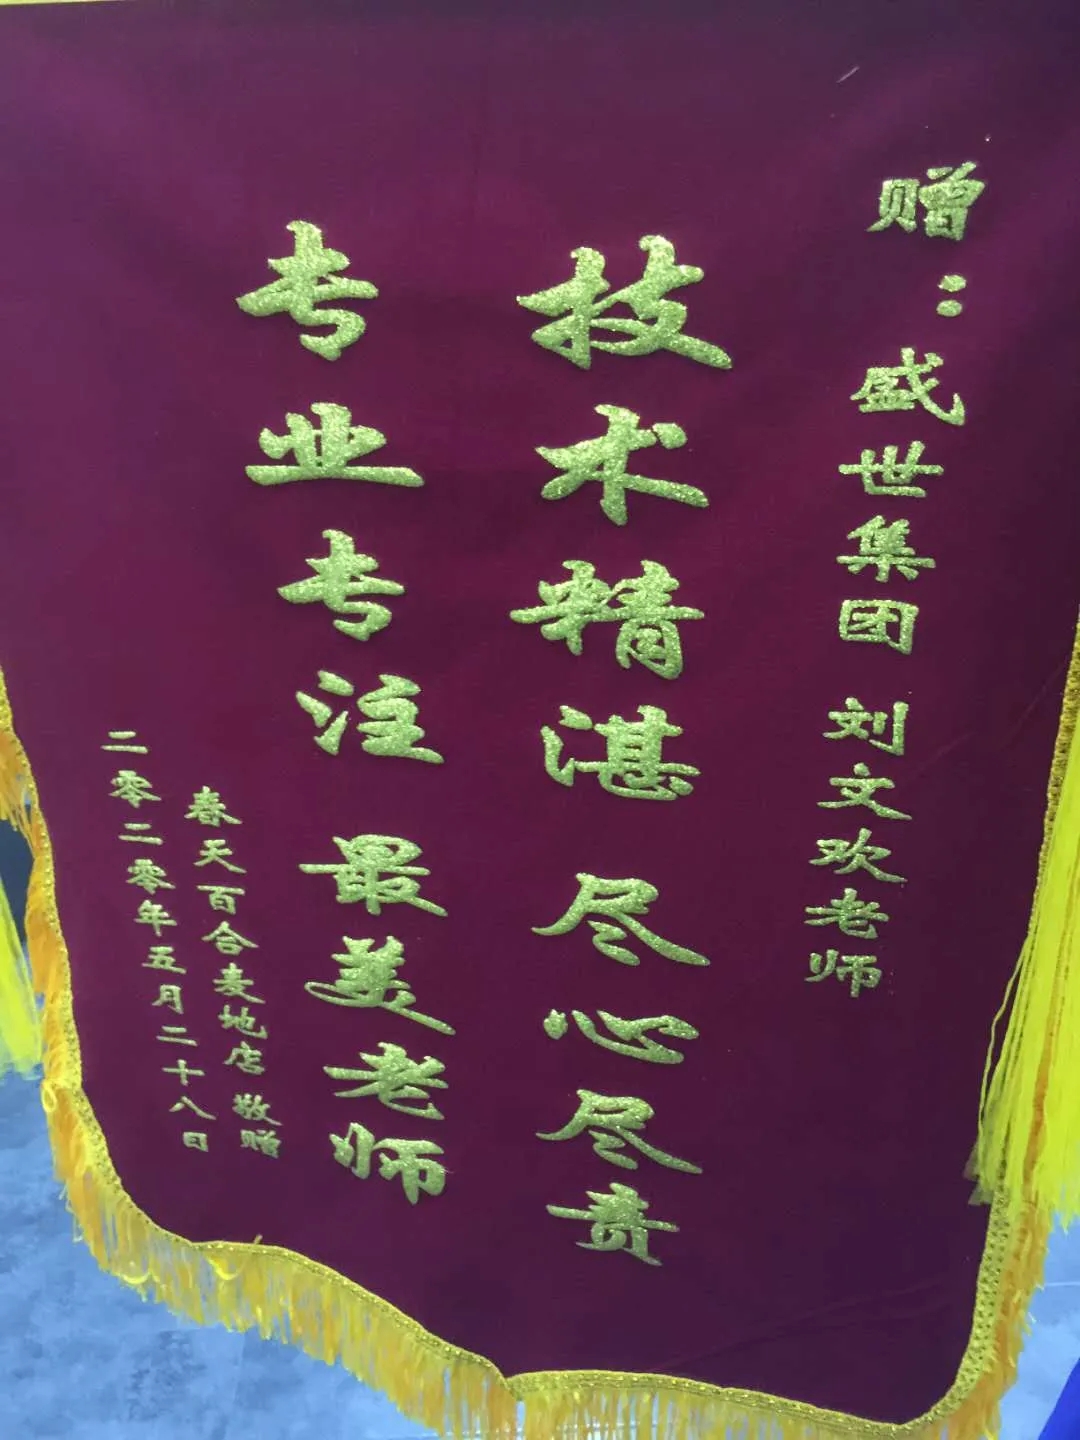 赠：盛世集团 刘文欢老师
技术精湛 尽心尽责
专业专注 最美老师
春天百合麦地店 敬赠
二零二零年五月二十八日